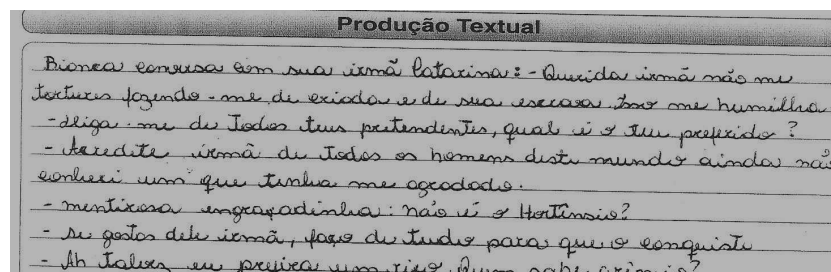 Produção Textual
Bianca conversa com sua irmã Catarina: - Querida irmã não me
tortures fazendo-me de criada e de sua escrava. Isso me humilha
- Diga-me de Todos teus pretendentes, qual é o teu preferido?
- Acredite irmã de Todos os homens deste mundo ainda não
conheci um que tenha me agradado.
- mentirosa engraçadinha: não é o Hortênsio?
- se gostas dele irmã, faço de tudo para que o conquiste
- Ah talvez eu prefira um rico. Quem sabe